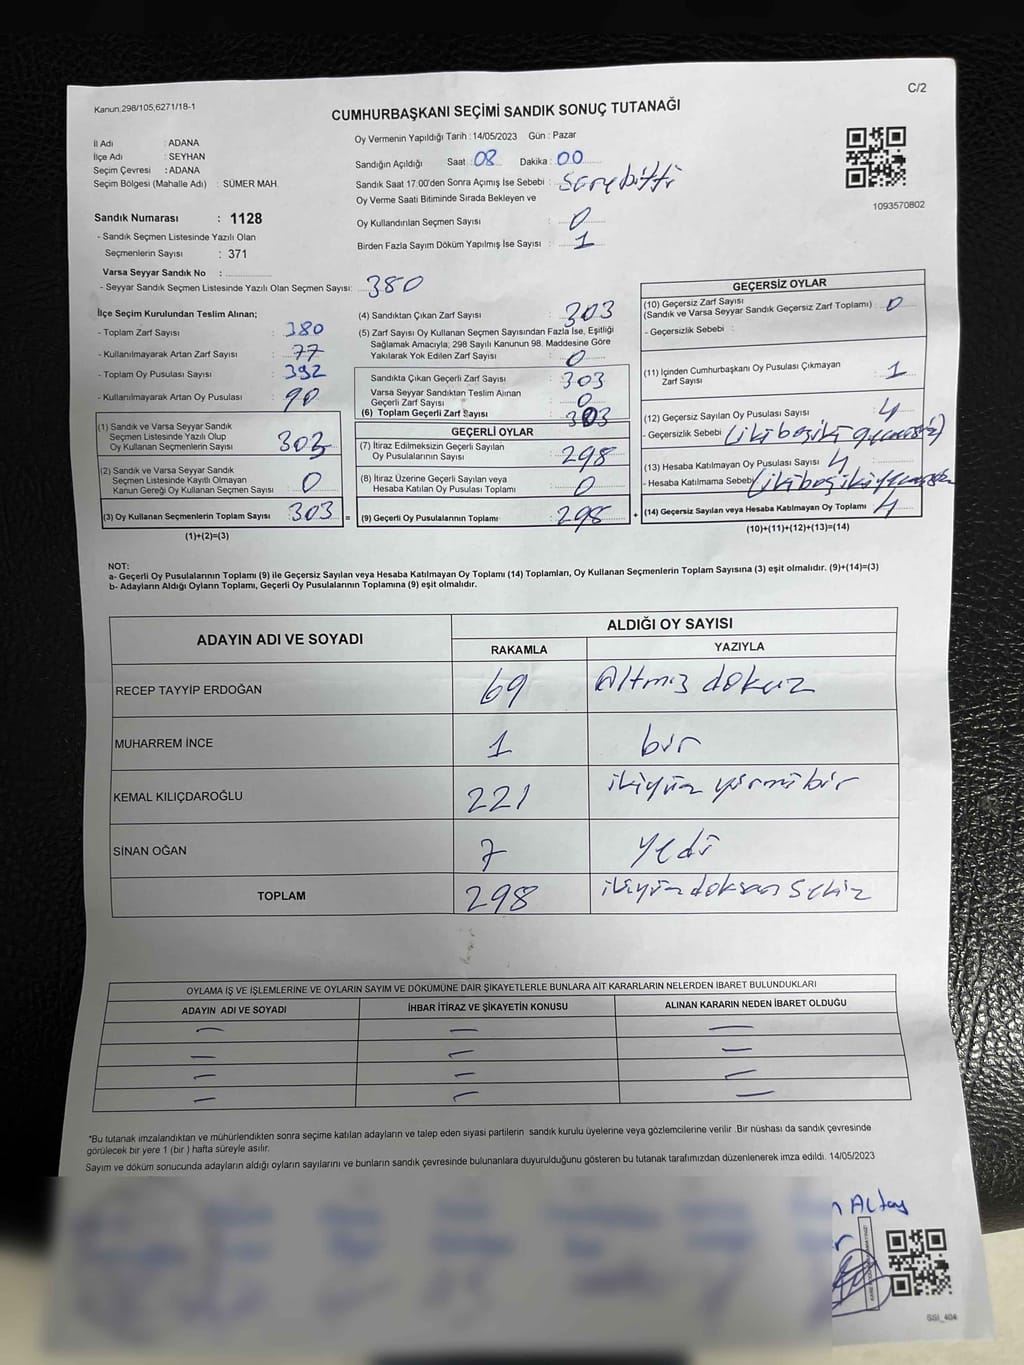 Kanun,298/105,6271/18-1
C/2
CUMHURBAŞKANI SEÇİMİ SANDIK SONUÇ TUTANAĞI
İl Adı : ADANA
İlçe Adı : SEYHAN
Seçim Çevresi : ADANA
Seçim Bölgesi (Mahalle Adı) : SÜMER MAH.
Sandık Numarası : 1128
- Sandık Seçmen Listesinde Yazılı Olan
Seçmenlerin Sayısı : 371
Varsa Seyyar Sandık No :
- Seyyar Sandık Seçmen Listesinde Yazılı Olan Seçmen Sayısı: 380
Oy Vermenin Yapıldığı Tarih : 14/05/2023 Gün : Pazar
Sandığın Açıldığı Saat : 08 Dakika : 00
Sandık Saat 17:00'den Sonra Açımış İse Sebebi : Süre bitti
Oy Verme Saati Bitiminde Sırada Bekleyen ve
Oy Kullandırılan Seçmen Sayısı : 0
Birden Fazla Sayım Döküm Yapılmış İse Sayısı : 1
1093570802
İlçe Seçim Kurulundan Teslim Alınan;
- Toplam Zarf Sayısı : 380
- Kullanılmayarak Artan Zarf Sayısı : 77
- Toplam Oy Pusulası Sayısı : 392
- Kullanılmayarak Artan Oy Pusulası : 90
(1) Sandık ve Varsa Seyyar Sandık
Seçmen Listesinde Yazılı Olup
Oy Kullanan Seçmenlerin Sayısı : 303
(2) Sandık ve Varsa Seyyar Sandık
Seçmen Listesinde Kayıtlı Olmayan
Kanun Gereği Oy Kullanan Seçmen Sayısı : 0
(3) Oy Kullanan Seçmenlerin Toplam Sayısı : 303 =
(1)+(2)=(3)
(4) Sandıktan Çıkan Zarf Sayısı : 303
(5) Zarf Sayısı Oy Kullanan Seçmen Sayısından Fazla İse, Eşitliği
Sağlamak Amacıyla; 298 Sayılı Kanunun 98. Maddesine Göre
Yakılarak Yok Edilen Zarf Sayısı : 0
Sandıkta Çıkan Geçerli Zarf Sayısı : 303
Varsa Seyyar Sandıktan Teslim Alınan
Geçerli Zarf Sayısı : 0
(6) Toplam Geçerli Zarf Sayısı : 303
GEÇERLİ OYLAR
(7) İtiraz Edilmeksizin Geçerli Sayılan
Oy Pusulalarının Sayısı : 298
(8) İtiraz Üzerine Geçerli Sayılan veya
Hesaba Katılan Oy Pusulası Toplamı : 0
(9) Geçerli Oy Pusulalarının Toplamı : 298 +
GEÇERSİZ OYLAR
(10) Geçersiz Zarf Sayısı
(Sandık ve Varsa Seyyar Sandık Geçersiz Zarf Toplamı) : 0
- Geçersizlik Sebebi :
(11) İçinden Cumhurbaşkanı Oy Pusulası Çıkmayan
Zarf Sayısı : 1
(12) Geçersiz Sayılan Oy Pusulası Sayısı : 4
- Geçersizlik Sebebi (iki boş iki geçersiz)
(13) Hesaba Katılmayan Oy Pusulası Sayısı : 4
- Hesaba Katılmama Sebebi (iki boş iki geçersiz
(14) Geçersiz Sayılan veya Hesaba Katılmayan Oy Toplamı 4
(10)+(11)+(12)+(13)=(14)
NOT:
a- Geçerli Oy Pusulalarının Toplamı (9) ile Geçersiz Sayılan veya Hesaba Katılmayan Oy Toplamı (14) Toplamları, Oy Kullanan Seçmenlerin Toplam Sayısına (3) eşit olmalıdır. (9)+(14)=(3)
b- Adayların Aldığı Oyların Toplamı, Geçerli Oy Pusulalarının Toplamına (9) eşit olmalıdır.
ADAYIN ADI VE SOYADI
ALDIĞI OY SAYISI
RAKAMLA YAZIYLA
RECEP TAYYİP ERDOĞAN 69 Altmış dokuz
MUHARREM İNCE 1 bir
KEMAL KILIÇDAROĞLU 221 ikiyüz yirmi bir
SİNAN OĞAN 7 yedi
TOPLAM 298 ikiyüz doksan sekiz
OYLAMA İŞ VE İŞLEMLERİNE VE OYLARIN SAYIM VE DÖKÜMÜNE DAİR ŞİKAYETLERLE BUNLARA AİT KARARLARIN NELERDEN İBARET BULUNDUKLARI
ADAYIN ADI VE SOYADI İHBAR İTİRAZ VE ŞİKAYETİN KONUSU ALINAN KARARIN NEDEN İBARET OLDUĞU
— — —
— — —
— — —
— — —
*Bu tutanak imzalandıktan ve mühürlendikten sonra seçime katılan adayların ve talep eden siyasi partilerin sandık kurulu üyelerine veya gözlemcilerine verilir .Bir nüshası da sandık çevresinde
görülecek bir yere 1 (bir ) hafta süreyle asılır.
Sayım ve döküm sonucunda adayların aldığı oyların sayılarını ve bunların sandık çevresinde bulunanlara duyurulduğunu gösteren bu tutanak tarafımızdan düzenlenerek imza edildi. 14/05/2023
Altay
SSI_404